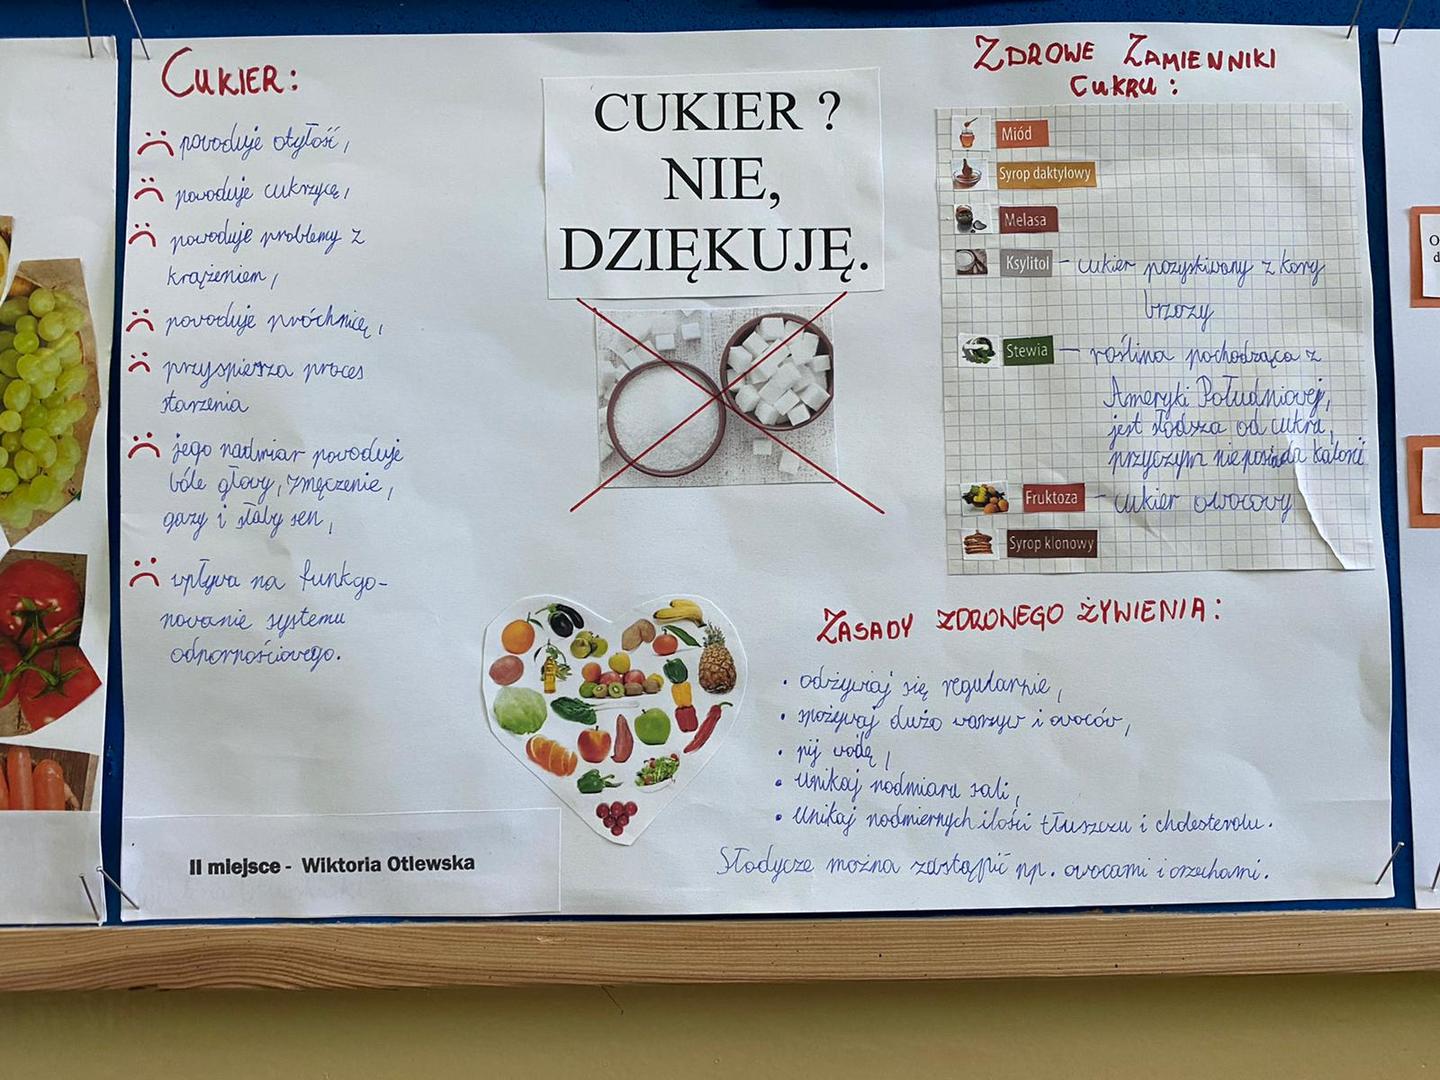 CUKIER:
powoduje otyłość,
powoduje cukrzycę,
powoduje problemy z
krążeniem,
powoduje próchnicę,
przyspiesza proces
starzenia
jego nadmiar powoduje
bóle głowy, zmęczenie,
gazy i słaby sen,
wpływa na funkcjo-
nowanie systemu
odpornościowego.
CUKIER ?
NIE,
DZIĘKUJĘ.
ZDROWE ZAMIENNIKI
CUKRU:
Miód
Syrop daktylowy
Melasa
Ksylitol - cukier pozyskiwany z kory
brzozy
Stewia - roślina pochodząca z
Ameryki Południowej,
jest słodsza od cukru,
przyczym nieposiada kalorii
Fruktoza - cukier owocowy
Syrop klonowy
ZASADY ZDROWEGO ŻYWIENIA:
• odżywiaj się regularnie,
• spożywaj dużo warzyw i owoców,
• pij wodę,
• unikaj nadmiaru soli,
• unikaj nadmiernych ilości tłuszczu i cholesterolu.
Słodycze można zastąpić np. owocami i orzechami.
II miejsce - Wiktoria Otlewska